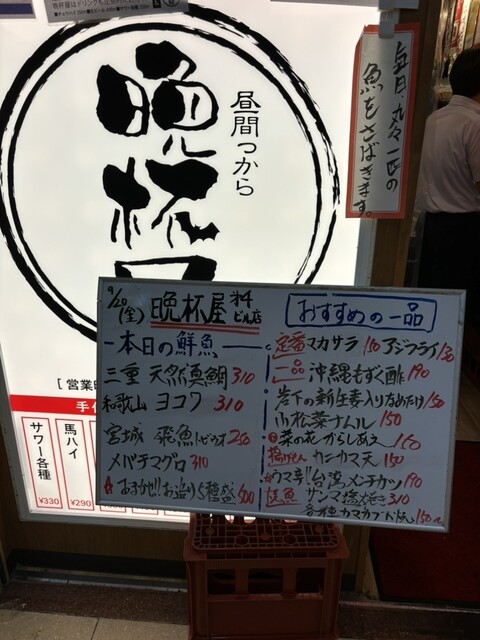 昼間っから
晩杯屋
毎月、丸々一匹の
魚をさばきます。
[営業時
サワー各種
¥330
馬ハイ
¥290
9/20(金) 晩杯屋 第4ビル店
本日の鮮魚
三重 天然真鯛 310
和歌山 ヨコワ 310
宮城 飛魚トビウオ 250
メバチマグロ 310
おまかせ!!お造り5種盛 500
おすすめの一品
定番 マカサラ 110 アジフライ 130
一品 沖縄もずく酢 190
岩下の新生姜入りなめたけ 150
小松菜ナムル 150
菜の花からしあえ 160
揚げもん カニカマ天 150
ウマ辛!!台湾メンチカツ 190
焼魚 サンマ塩焼き 310
各種カマカブト焼 150〜